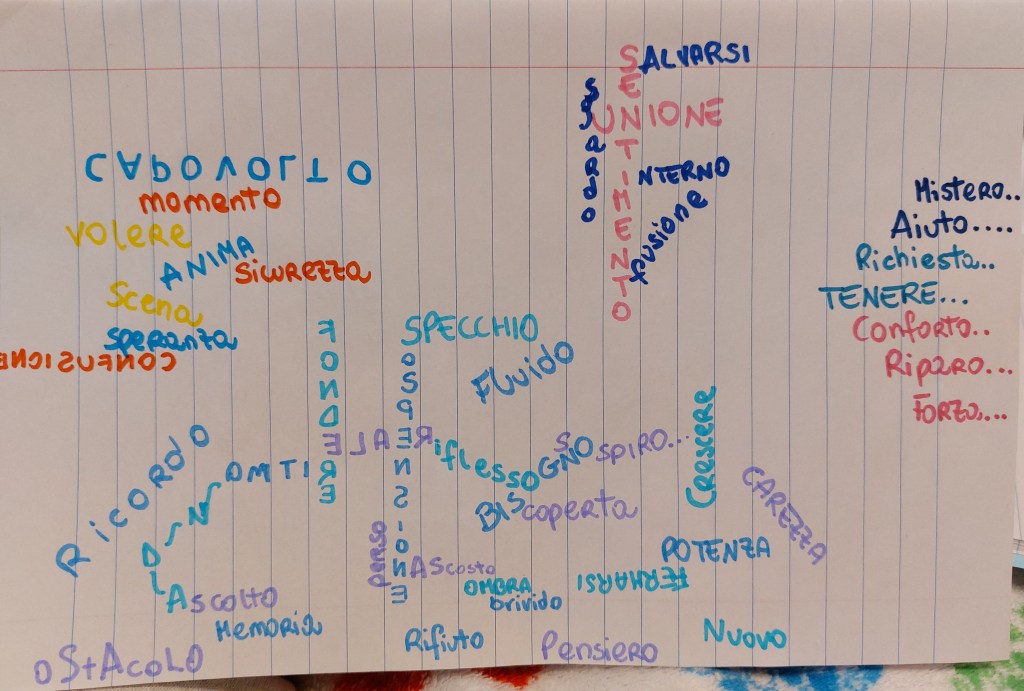 SALVARSI
SENTIMENTO
SGUARDO
UNIONE
INTERNO
fusione
CAPOVOLTO
momento
VOLERE
ANIMA
Sicurezza
Scena
speranza
CONFUSIONE
Mistero..
Aiuto....
Richiesta..
TENERE...
Conforto..
Riparo...
Forza...
FONDERE
SPECCHIO
SOSPENSIONE
FLUido
REALE
Riflesso
SOGNO
SOSPIRO...
Crescere
CAREZZA
RicoRdo
BIS
Scoperta
perso
nAscosto
OMBRA
brivido
POTENZA
FERMARSI
Ascolto
Memoria
oStAcoLO
Rifiuto
Pensiero
Nuovo